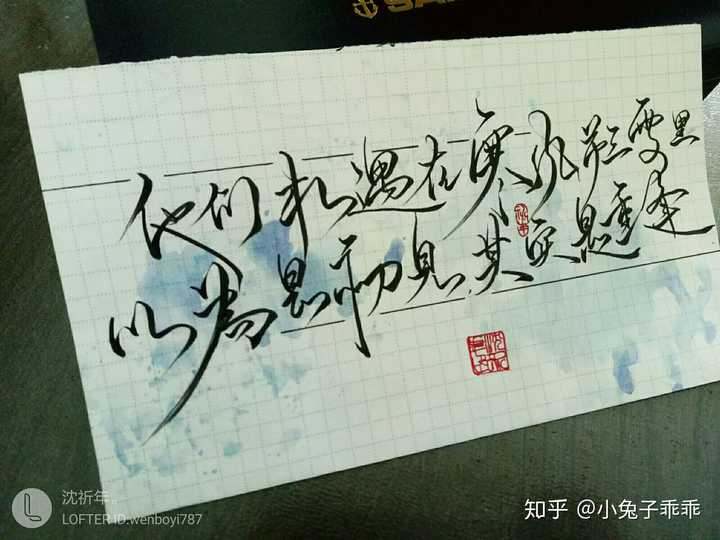 SA
他们相遇在寒 雪里
以为是初见 其实是重逢
沈祈年。
LOFTER ID:wenboyi787
知乎 @小兔子乖乖